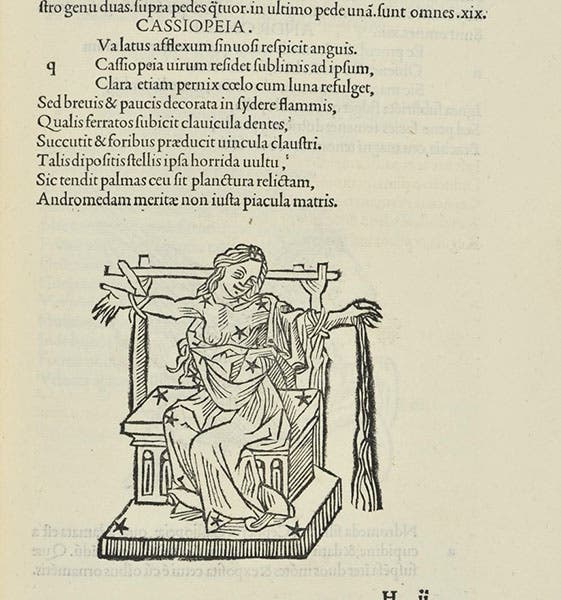 stro genu duas. supra pedes q̃tuor. in ultimo pede unā. sunt omnes .xix.
CASSIOPEIA.
Va latus afflexum sinuosi respicit anguis.
q Cassiopeia uirum residet sublimis ad ipsum,
Clara etiam pernix cœlo cum luna refulget,
Sed breuis & paucis decorata in sydere flammis,
Qualis ferratos subicit clauicula dentes,
Succutit & foribus præducit uincula claustri.
Talis dipositis stellis ipsa horrida uultu,
Sic tendit palmas ceu sit planctura relictam,
Andromedam meritæ non iusta piacula matris.
H ii